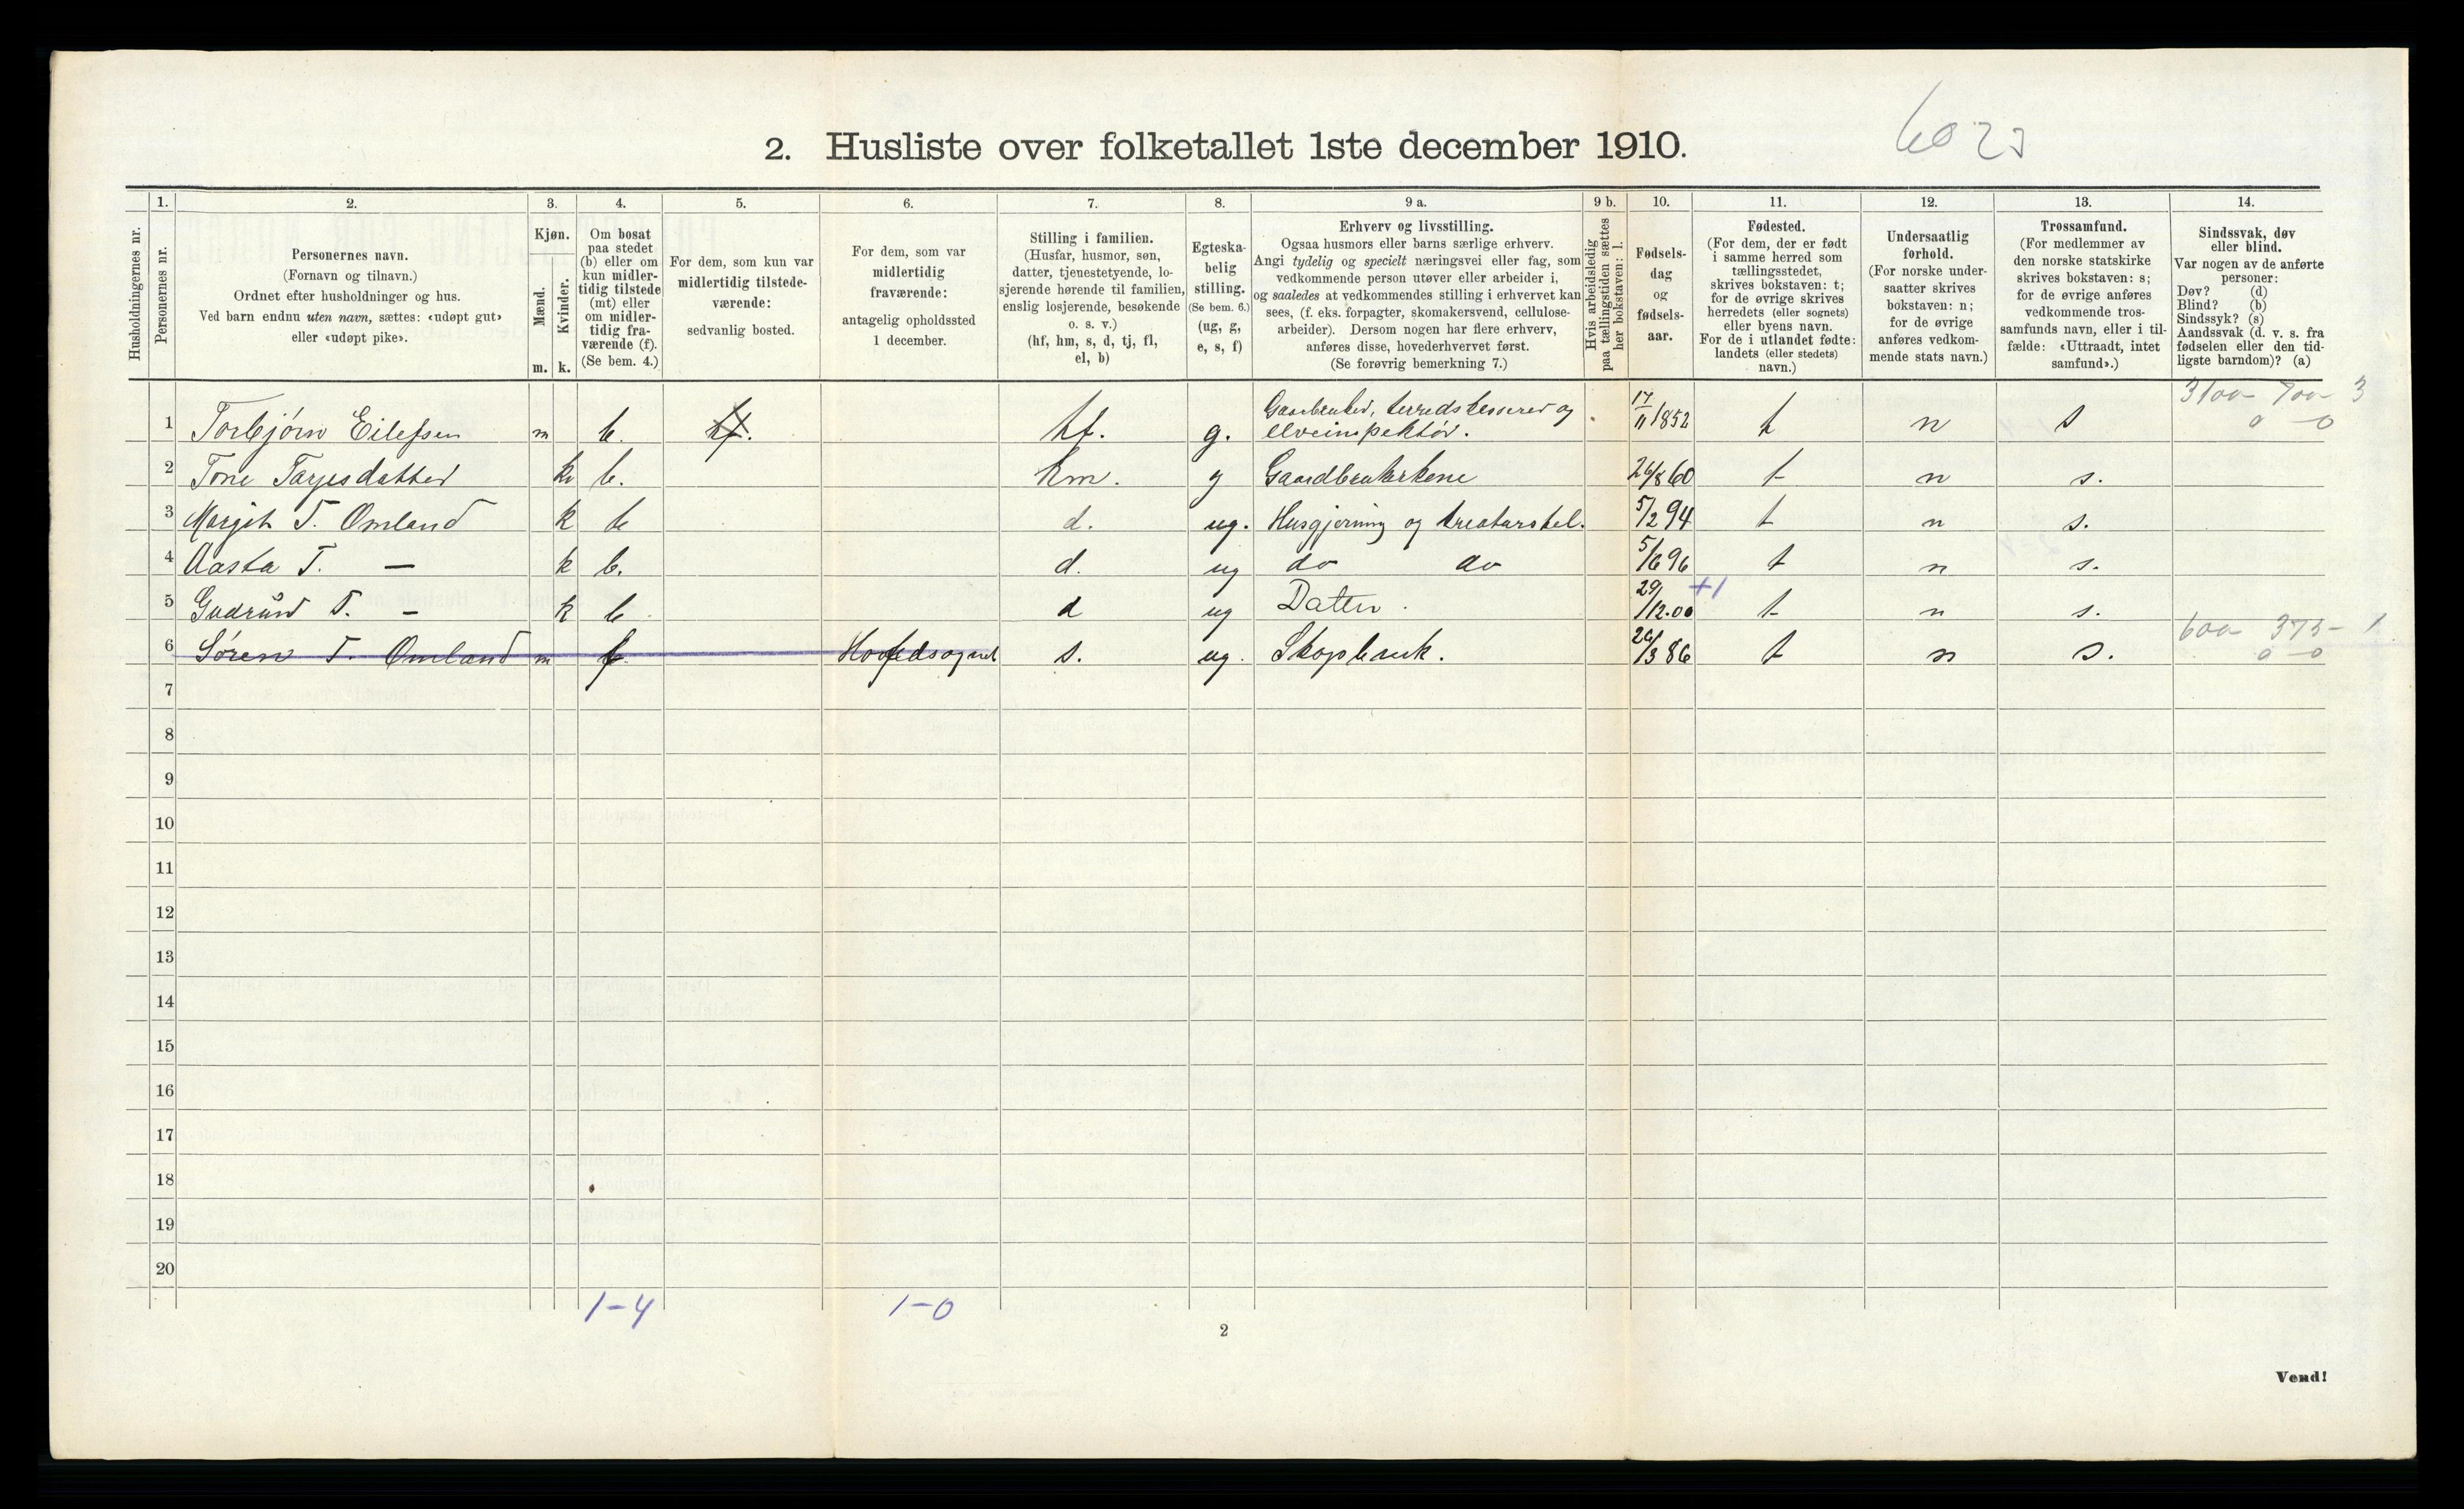 2. Husliste over folketallet 1ste december 1910.
Husholdningernes nr.
1.
Personernes nr.
2.
Personernes navn.
(Fornavn og tilnavn.)
Ordnet efter husholdninger og hus.
Ved barn endnu uten navn, sættes: «udøpt gut»
eller «udøpt pike».
3.
Kjøn.
Mænd.
Kvinder.
m. k.
4.
Om bosat
paa stedet
(b) eller om
kun midler-
tidig tilstede
(mt) eller
om midler-
tidig fra-
værende (f).
(Se bem. 4.)
5.
For dem, som kun var
midlertidig tilstede-
værende:
sedvanlig bosted.
6.
For dem, som var
midlertidig
fraværende:
antagelig opholdssted
1 december.
7.
Stilling i familien.
(Husfar, husmor, søn,
datter, tjenestetyende, lo-
sjerende hørende til familien,
enslig losjerende, besøkende
o. s. v.)
(hf, hm, s, d, tj, fl,
el, b)
8.
Egteska-
belig
stilling.
(Se bem. 6.)
(ug, g,
e, s, f)
9 a.
Erhverv og livsstilling.
Ogsaa husmors eller barns særlige erhverv.
Angi tydelig og specielt næringsvei eller fag, som
vedkommende person utøver eller arbeider i,
og saaledes at vedkommendes stilling i erhvervet kan
sees, (f. eks. forpagter, skomakersvend, cellulose-
arbeider). Dersom nogen har flere erhverv,
anføres disse, hovederhvervet først.
(Se forøvrig bemerkning 7.)
9 b.
Hvis arbeidsledig
paa tællingstiden sættes
her bokstaven: l.
10.
Fødsels-
dag
og
fødsels-
aar.
11.
Fødested.
(For dem, der er født
i samme herred som
tællingsstedet,
skrives bokstaven: t;
for de øvrige skrives
herredets (eller sognets)
eller byens navn.
For de i utlandet fødte:
landets (eller stedets)
navn.)
12.
Undersaatlig
forhold.
(For norske under-
saatter skrives
bokstaven: n;
for de øvrige
anføres vedkom-
mende stats navn.)
13.
Trossamfund.
(For medlemmer av
den norske statskirke
skrives bokstaven: s;
for de øvrige anføres
vedkommende tros-
samfunds navn, eller i til-
fælde: «Uttraadt, intet
samfund».)
14.
Sindssvak, døv
eller blind.
Var nogen av de anførte
personer:
Døv? (d)
Blind? (b)
Sindssyk? (s)
Aandssvak (d. v. s. fra
fødselen eller den tid-
ligste barndom)? (a)
1 Torbjørn Eilefsen m b. hf. hf. g. Gaarbruker, herredskasserer og elveinspektør. 17/11 1852 t n s
2 Tone Tarjesdatter k b. hm. g Gaardbrukerkone 26/8 60 t n s.
3 Margit T. Omland k b d. ug. Husgjerning og kreaturstel. 5/2 94 t n s.
4 Aasta T. — k b. d. ug do do 5/6 96 t n s.
5 Gudrun T. — k b d ug Datter. 29/12.00 +1 t n s.
6 Søren T. Omland m f Hovedsognet s. ug. Skogbruk. 26/3 86 t n s.
7
8
9
10
11
12
13
14
15
16
17
18
19
20
1-4 1-0
2
Vend!